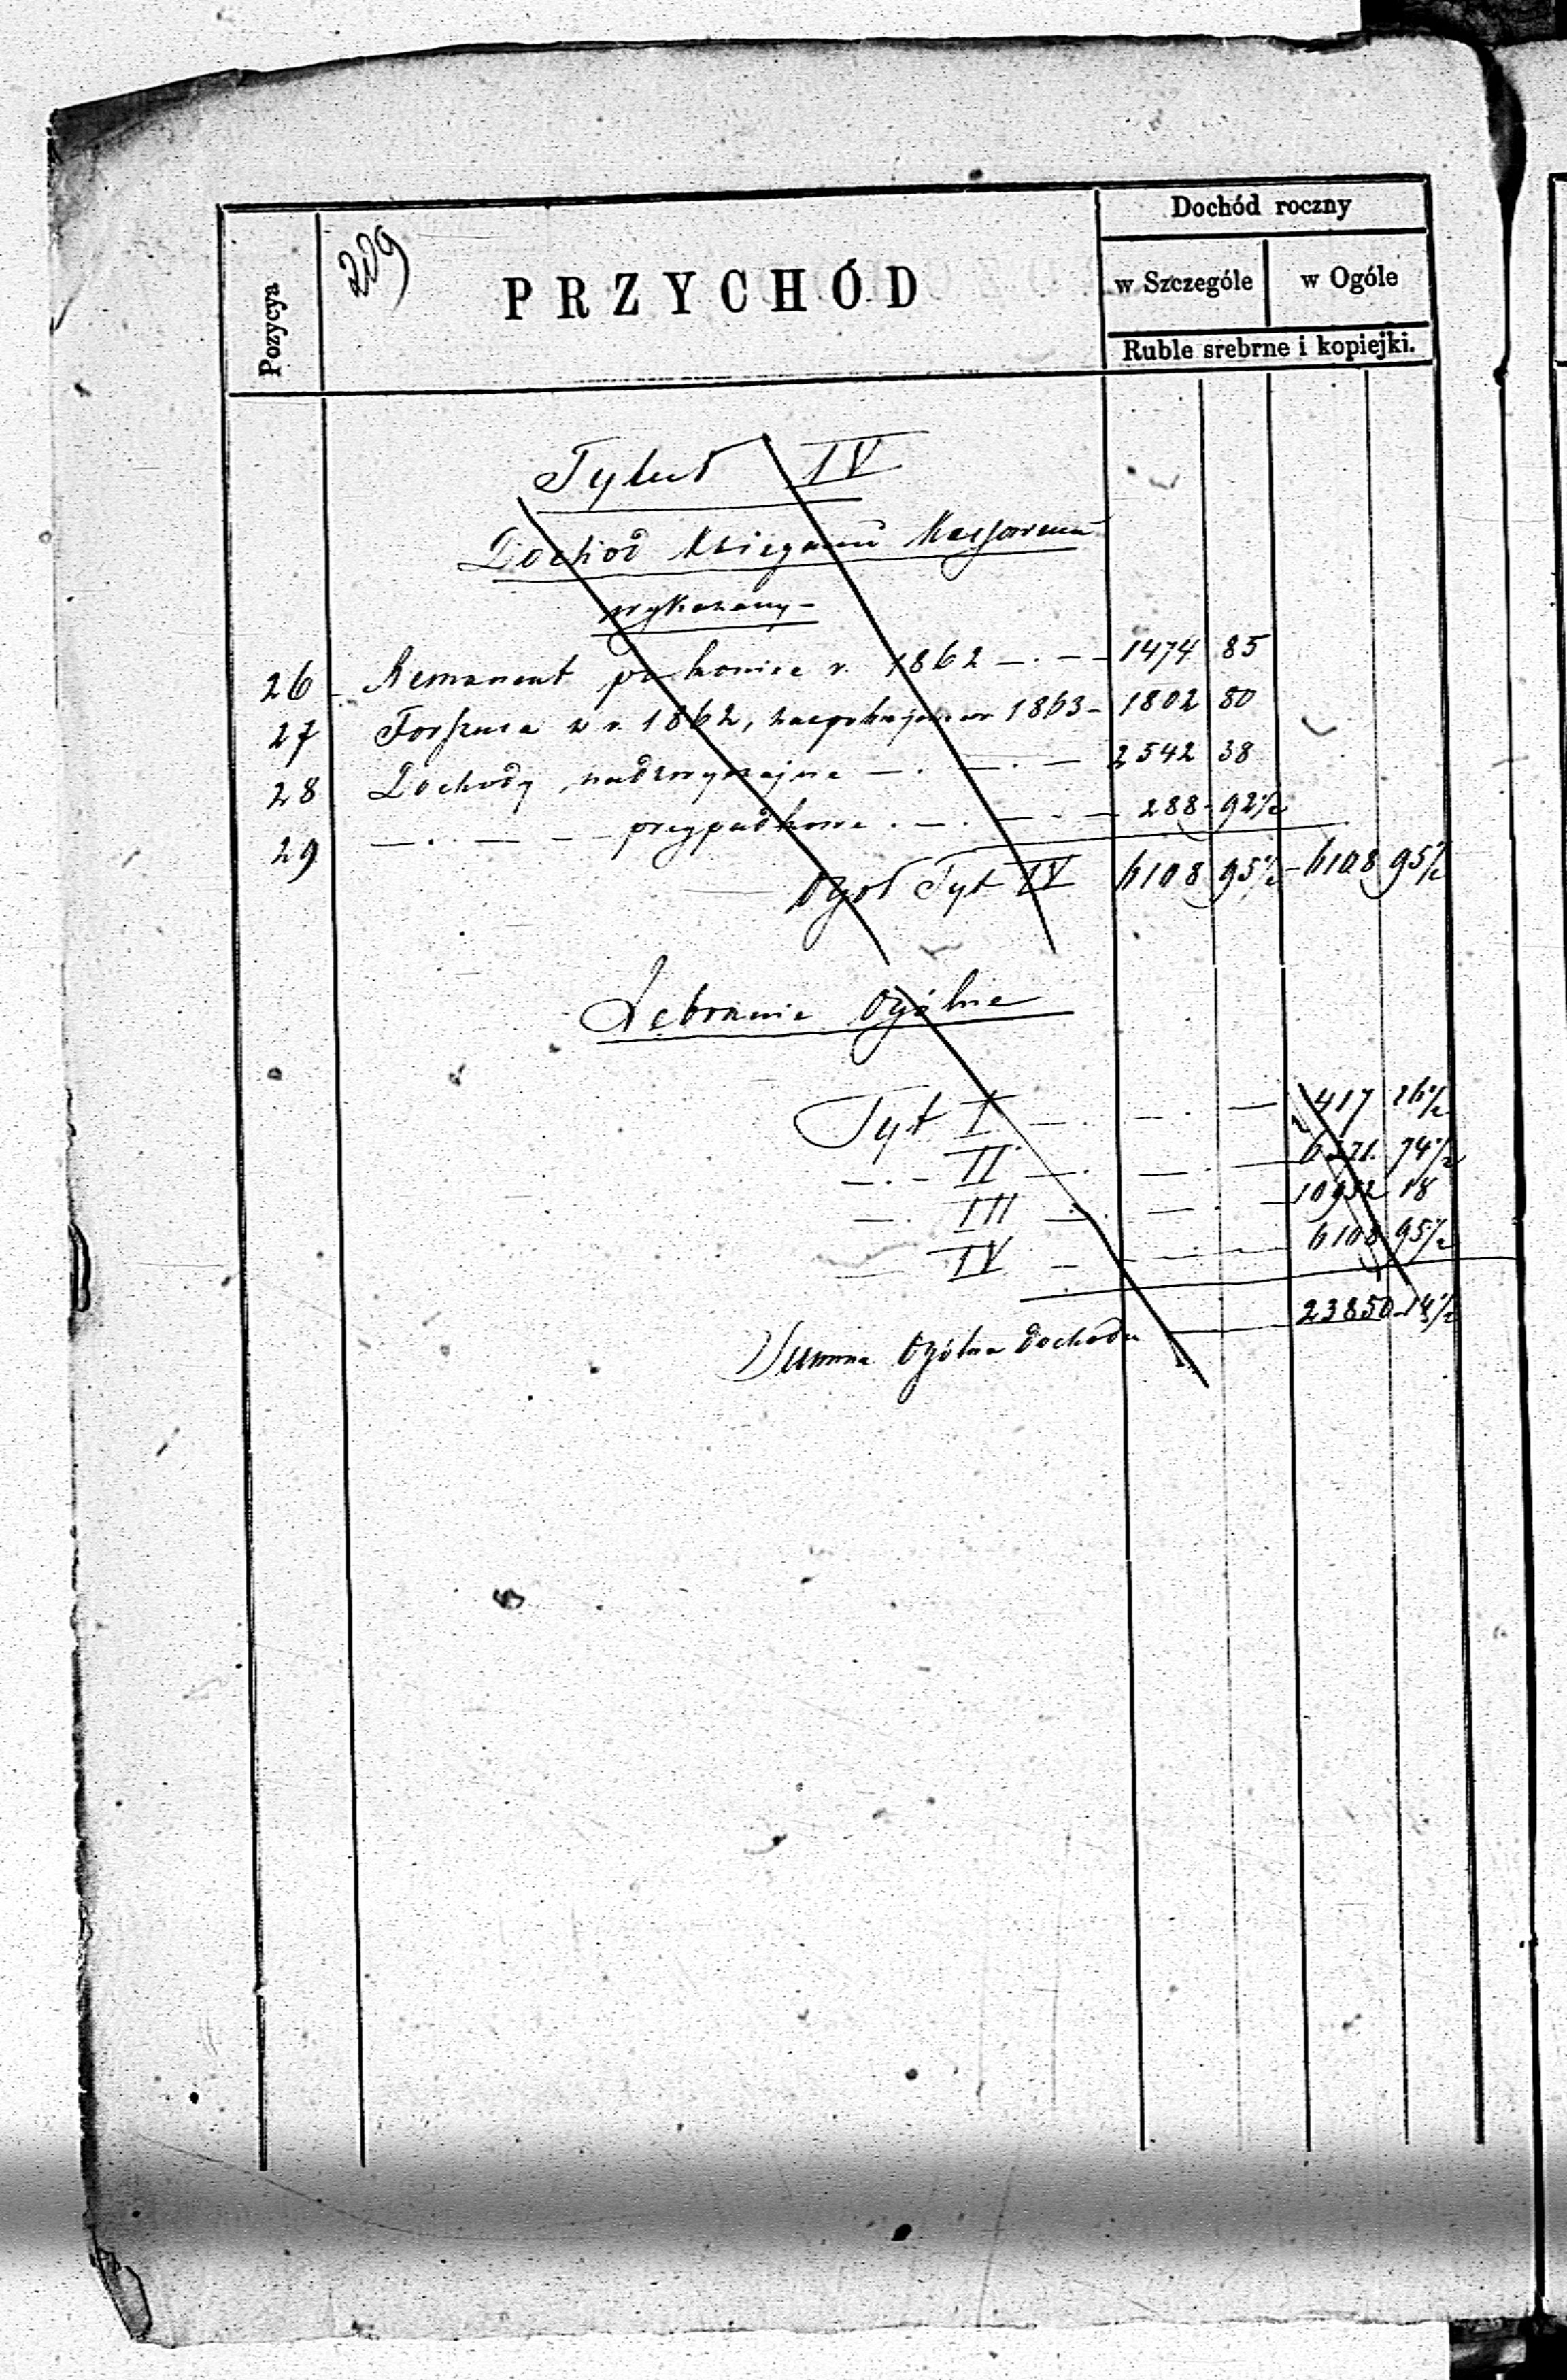 Dochód roczny
Pozycya
209
PRZYCHÓD
w Szczególe
w Ogóle
Ruble srebrne i kopiejki.
Tytuł IV
Dochód Księgami Kassowemi
wykazany -
26 Remanent po koniec r. 1862 1474 85
27 Forszusa z r. 1862, zaspokojone w r. 1863 - 1802 80
28 Dochody nadzwyczajne 2542 38
29 przypadkowe 288 92½
Ogół Tyt IV 6108 95½ 6108 95½
Zebranie Ogólne
Tyt I 417 26½
II 74½
III 18
IV 6108 95½
Summa Ogólna dochodu 23850 14½